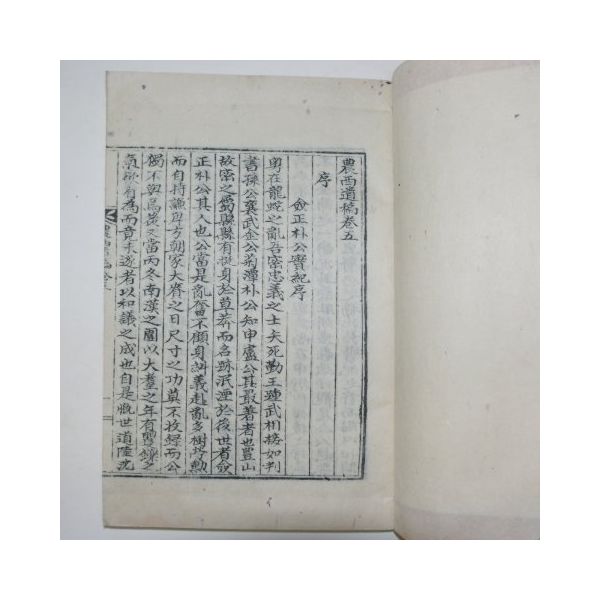 農西遺稿卷五
序
僉正朴公實紀序
粤在龍蛇之亂吾密忠義之士矢死勤王踵武相接如判
書孫公襄武金公菊潭朴公知申盧公其最著者也豈山
故密之屬縣縣有挺身於草莽而名跡泯湮於後世者僉
正朴公其人也公當是亂奮不顧身講義赴亂多樹功勳
而自持謙與方朝家大眷之日尺寸之功莫不收錄而公
獨不與焉後又當丙冬南漢之圍以大耋之年有矍鑠之
氣欲有爲而竟未遂者以和議之成也自是慨世道陸沈